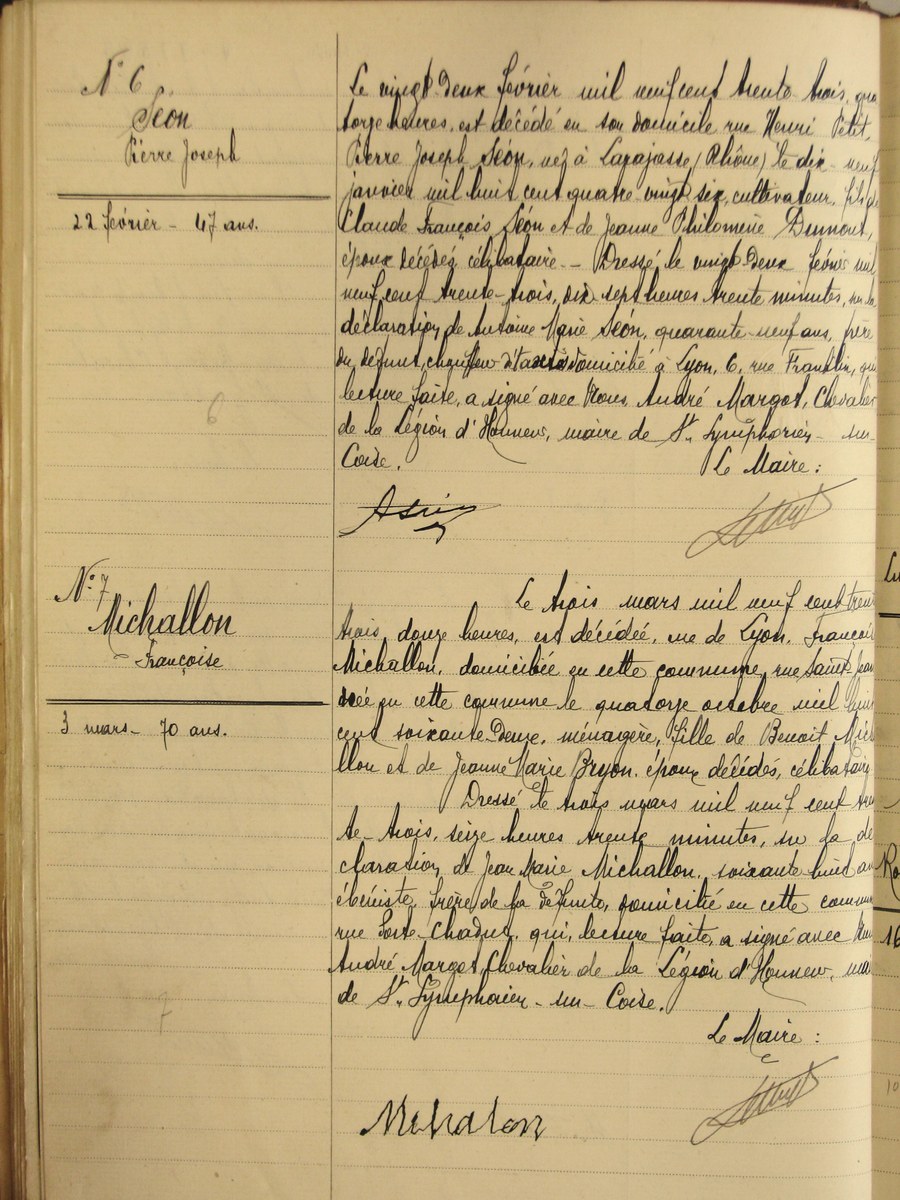 N° 6
Séon
Pierre Joseph
22 février - 47 ans.
6
Le vingt deux février mil neuf cent trente trois, qua
torze heures, est décédé en son domicile rue Henri Petit,
Pierre Joseph Séon, né à Larajasse (Rhône) le dix- neuf
janvier mil huit cent quatre-vingt six, cultivateur, fils de
Claude François Séon et de Jeanne Philomène Dumont,
époux décédés, célibataire. - Dressé le vingt deux février mil
neuf cent trente-trois, dix sept heures trente minutes, sur la
déclaration de Antoine Marie Séon, quarante-neuf ans, frère
du défunt, chauffeur d'taxis domicilié à Lyon, 6, rue Franklin, qui
lecture faite, a signé avec Nous, André Margot, Chevalier
de la Légion d'Honneur, maire de St. Symphorien - sur-
Coise.
Le Maire :
N° 7
Michallon
Françoise
3 mars - 70 ans.
7
Le trois mars mil neuf cent tren
trois, douze heures, est décédée, rue de Lyon, Françoise
Michallon, domiciliée en cette commune, rue Saint-Jean
née en cette commune le quatorze octobre mil huit
cent soixante-Deuze, ménagère, fille de Benoit Mich
llon et de Jeanne Marie Bryon, époux décédés, célibataire
Dressé le trois mars mil neuf cent tren
te-trois, seize heures trente minutes, sur la dé
claration de Jean Marie Michallon, soixante huit an
ébéniste, frère de la défunte, domicilié en cette commune
rue Porte-Chadut, qui, lecture faite, a signé avec Nous
André Margot, Chevalier de la Légion d'Honneur, mai
de St. Symphorien - sur - Coise.
Le Maire :
Michalon